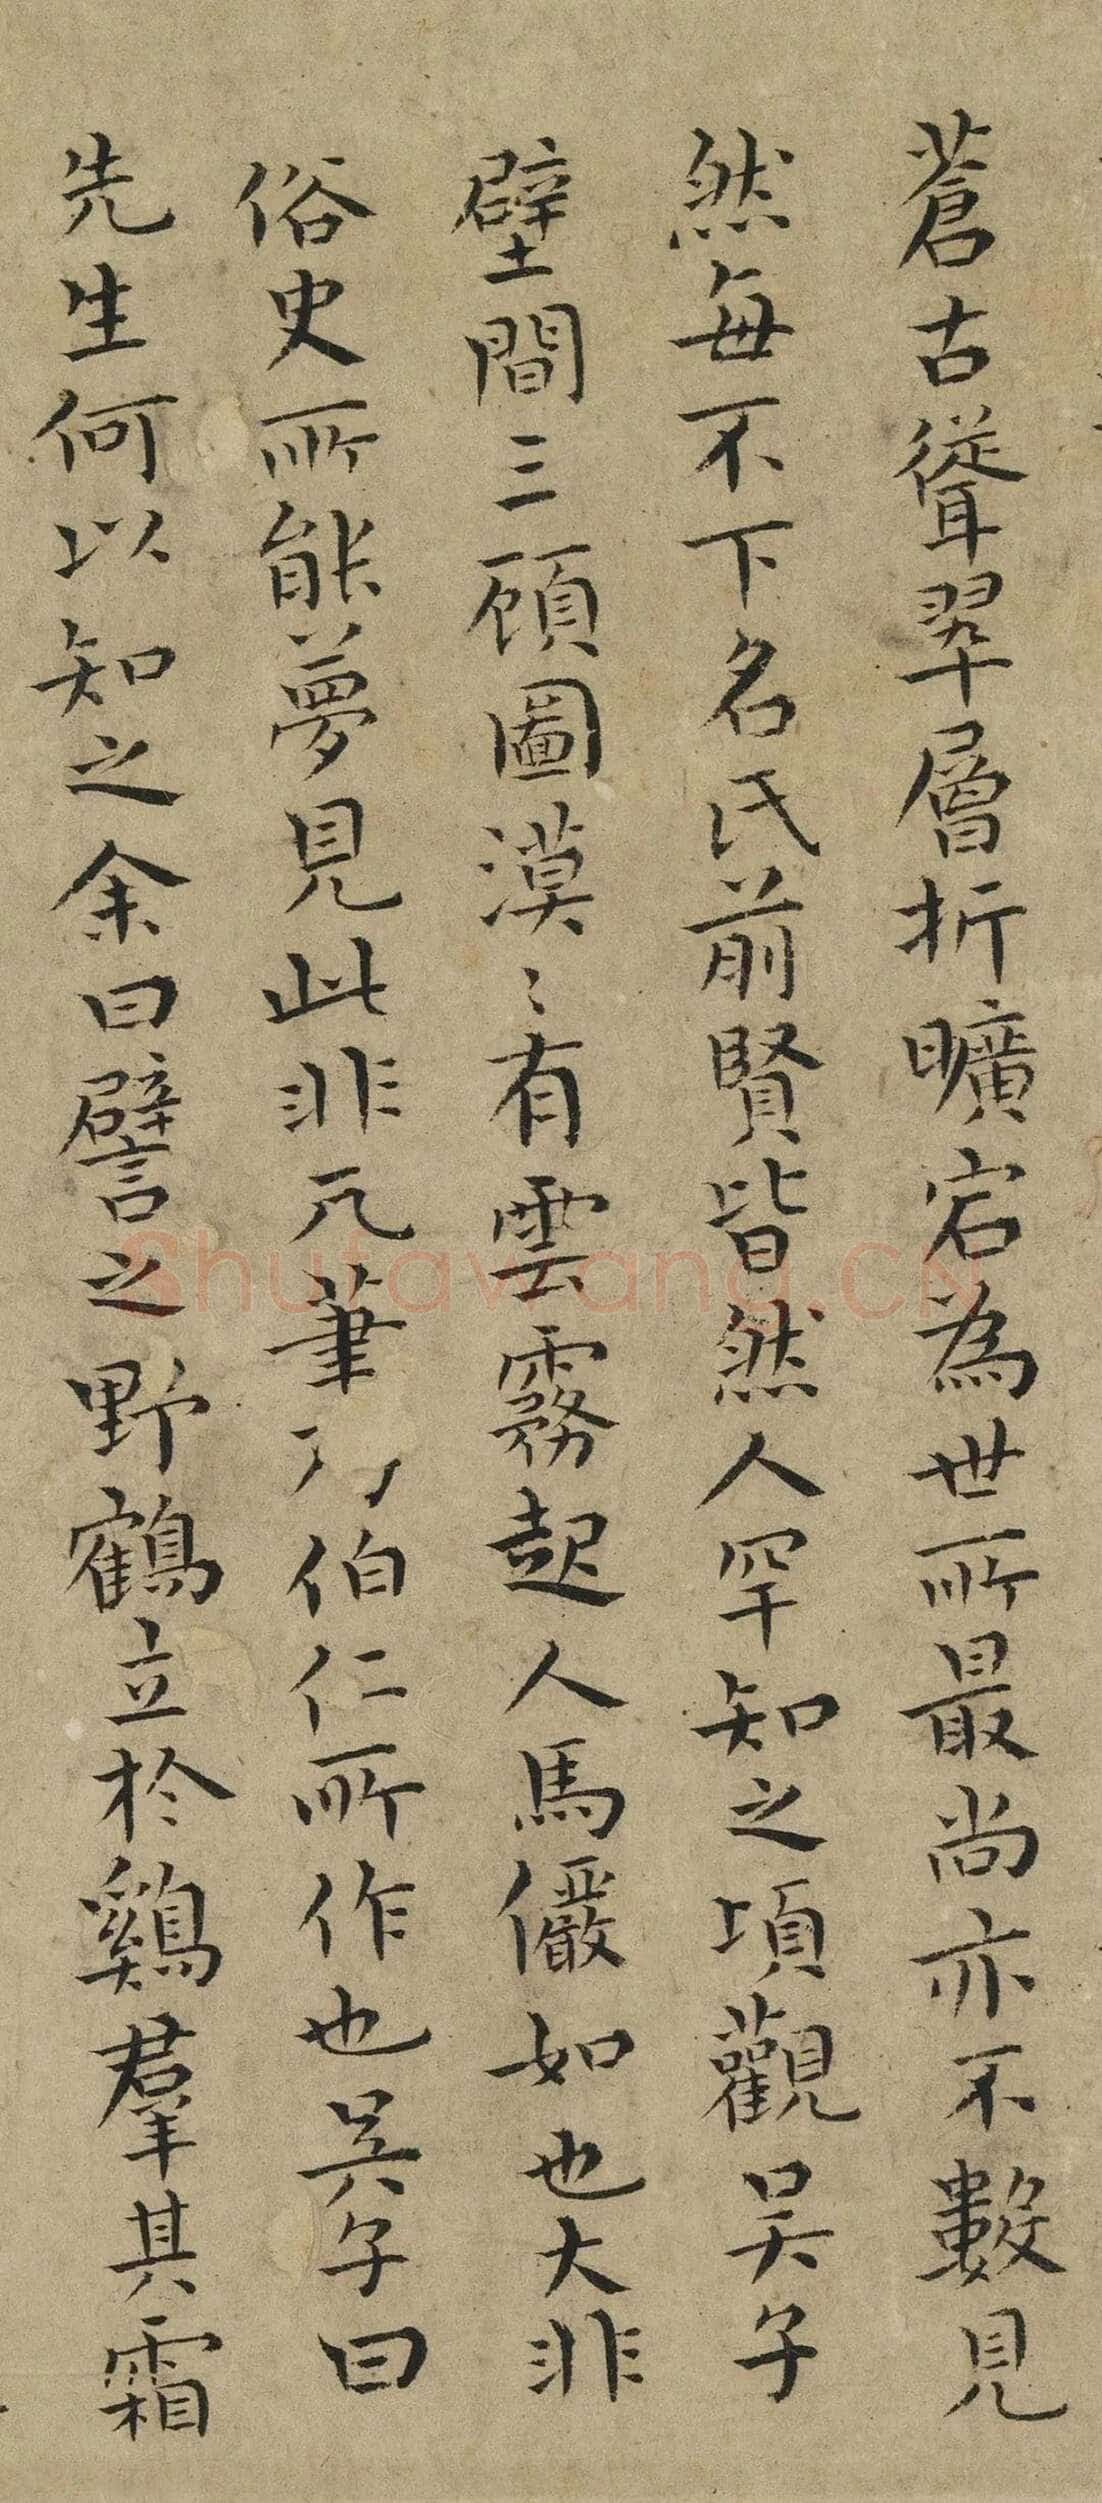 蒼古聳翠層折曠宕為世所最尚亦不數見
然每不下名氏前賢皆然人罕知之頃觀吴子
壁間三顧圖漠〻有雲霧起人馬儼如也大非
俗史所能夢見此非凡筆乃伯仁所作也吴子曰
先生何以知之余曰譬之野鶴立於鷄羣其霜
Shufawang.CN